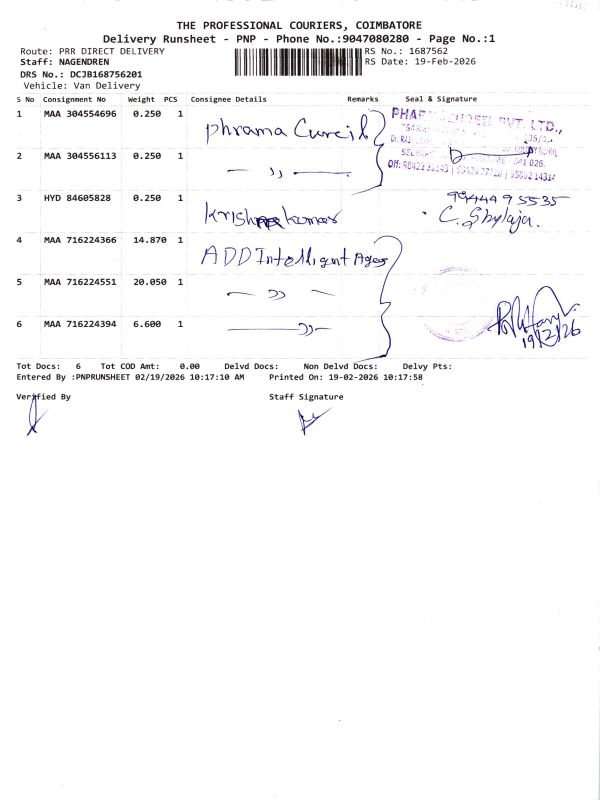 THE PROFESSIONAL COURIERS, COIMBATORE
Delivery Runsheet - PNP - Phone No.:9047080280 - Page No.:1
Route: PRR DIRECT DELIVERY RS No.: 1687562
Staff: NAGENDREN RS Date: 19-Feb-2026
DRS No.: DCJB168756201
Vehicle: Van Delivery
S No Consignment No Weight PCS Consignee Details Remarks Seal & Signature
1 MAA 304554696 0.250 1 Phrama
2 MAA 304556113 0.250 1 — " —
PVT. LTD.,
3 HYD 84605828 0.250 1 Krishnakumar 9944495535
C. Shylaja.
4 MAA 716224366 14.870 1 ADD Intelligent
5 MAA 716224551 20.050 1 — " —
6 MAA 716224394 6.600 1 — " —
19/2/26
Tot Docs: 6 Tot COD Amt: 0.00 Delvd Docs: Non Delvd Docs: Delvy Pts:
Entered By :PNPRUNSHEET 02/19/2026 10:17:10 AM Printed On: 19-02-2026 10:17:58
Verified By Staff Signature